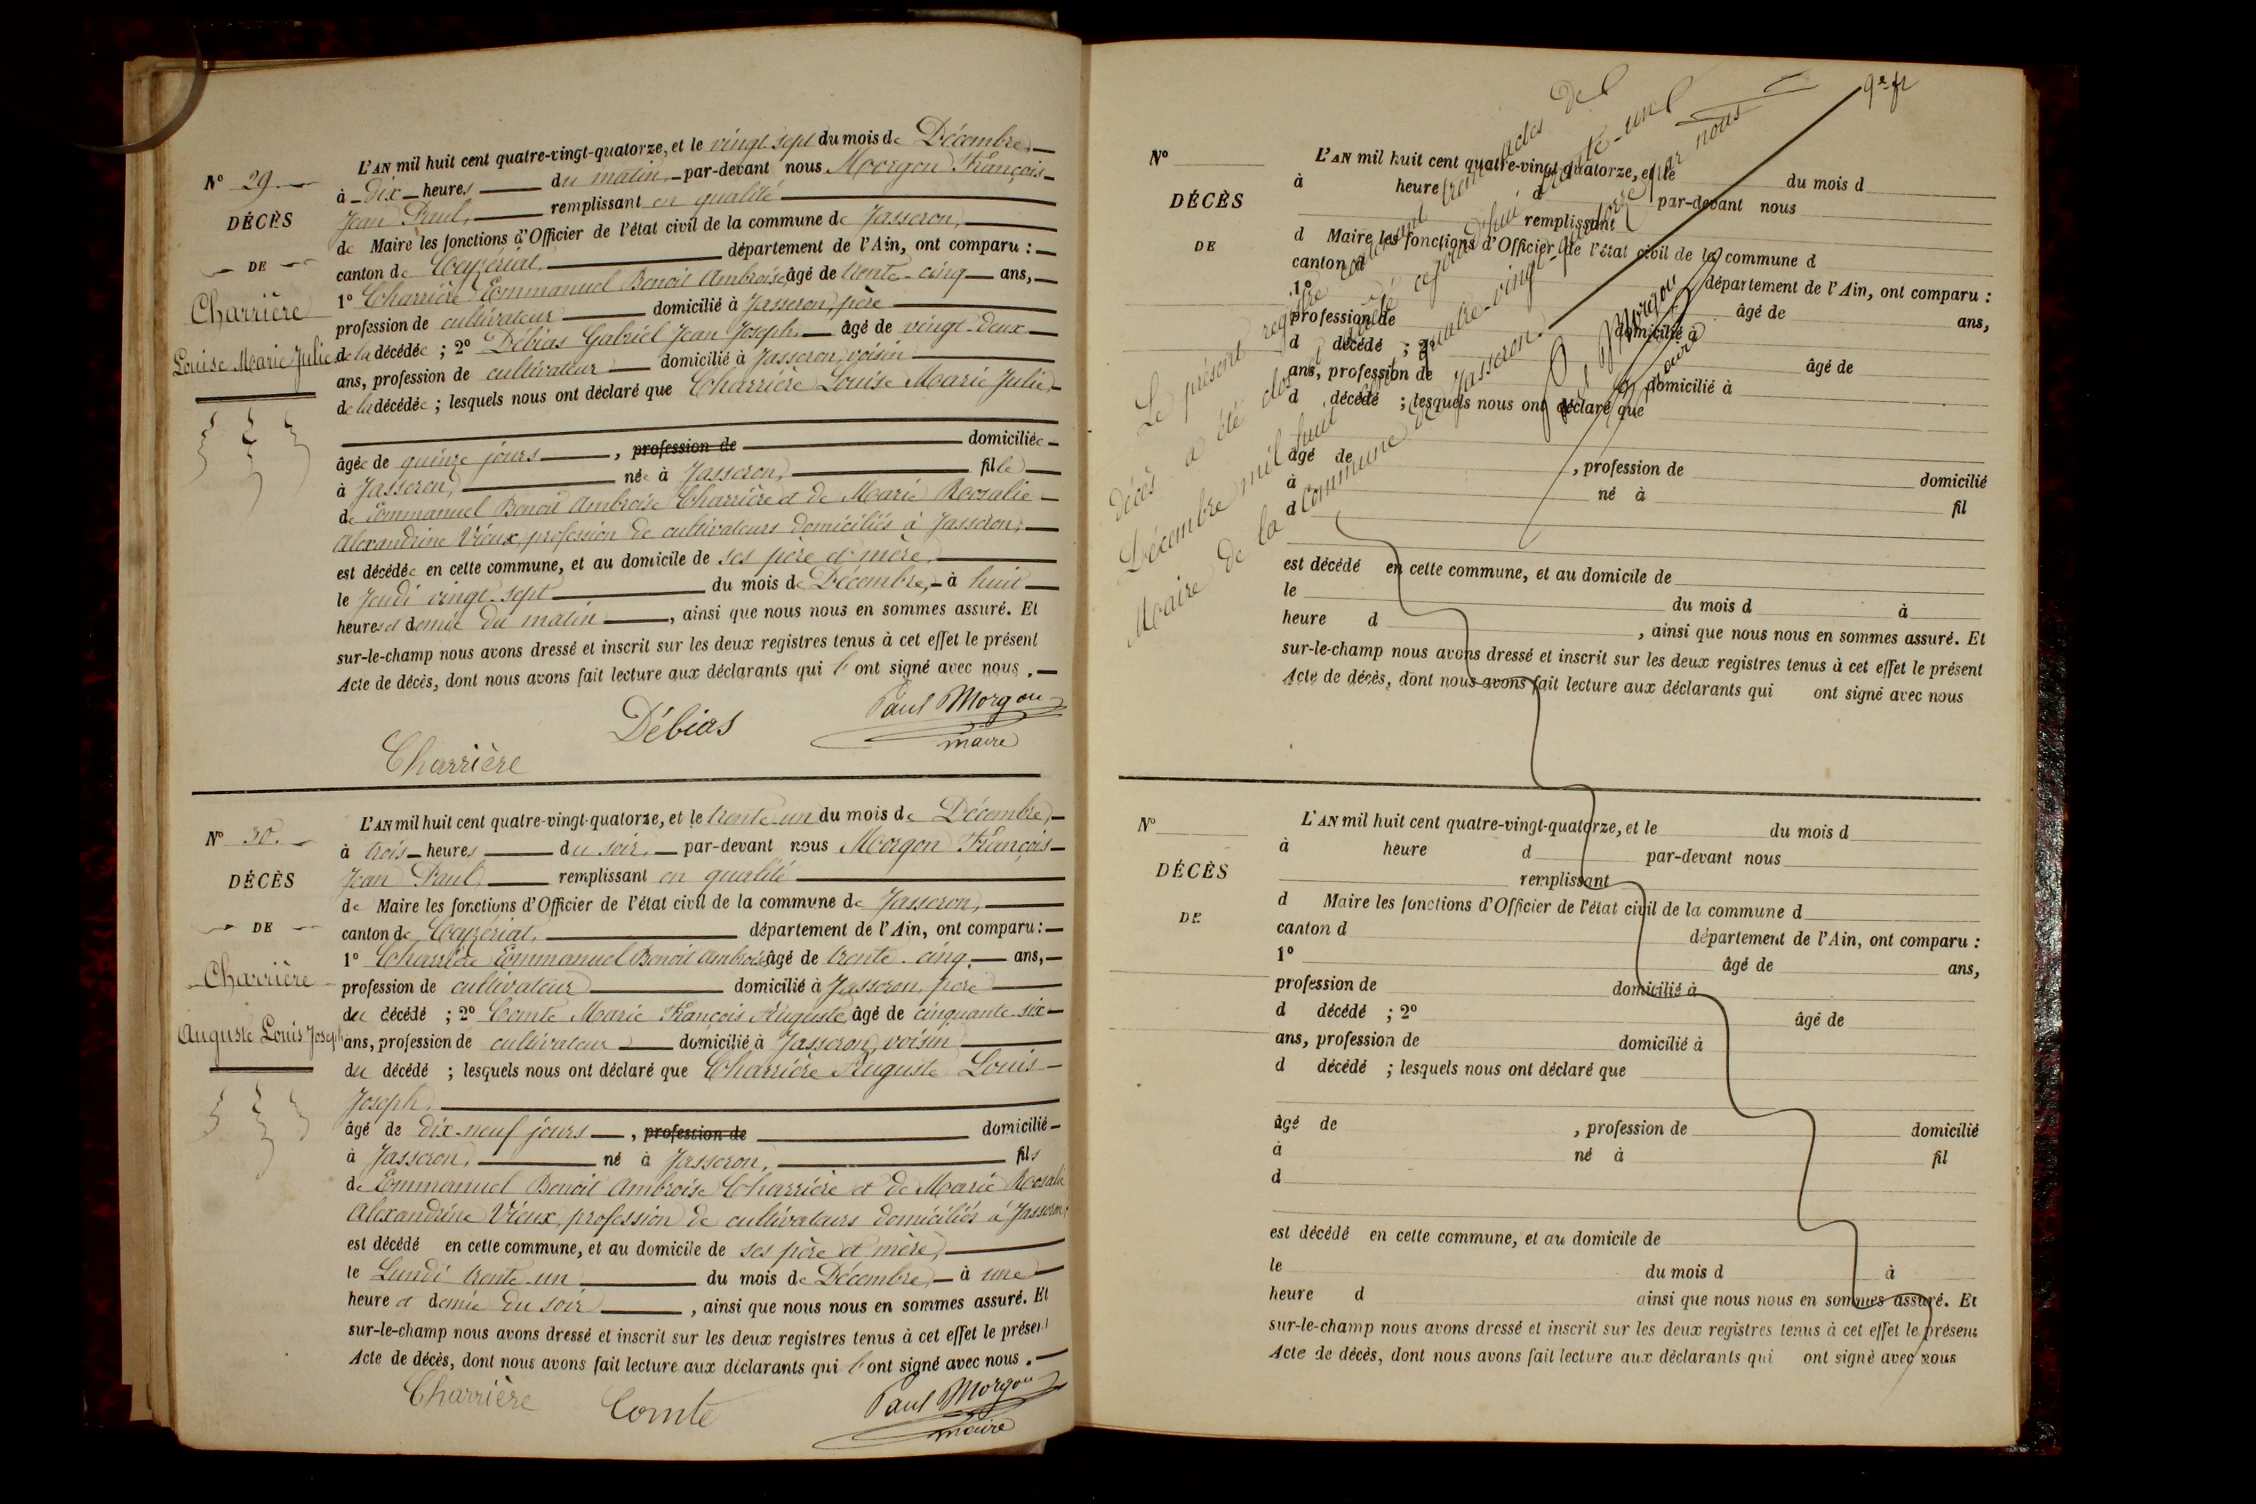 L'AN mil huit cent quatre-vingt-quatorze, et le vingt sept du mois de Décembre,
N° 29.
à dix heures du matin, par-devant nous Morgon François
Jean Paul, remplissant en qualité
DÉCÈS
de Maire les fonctions d'Officier de l'état civil de la commune de Jasseron,
DE
canton de Ceyzériat, département de l'Ain, ont comparu :
1° Charrière Emmanuel Benoit Ambroise, âgé de trente-cinq ans,
Charrière
profession de cultivateur domicilié à Jasseron, père
Louise Marie Julie
de la décédée ; 2° Débias Gabriel Jean Joseph, âgé de vingt-deux
ans, profession de cultivateur domicilié à Jasseron, voisin
de la décédée ; lesquels nous ont déclaré que Charrière Louise Marie Julie,
âgée de quinze jours, profession de domiciliée
à Jasseron, née à Jasseron, fille
de Emmanuel Benoit Ambroise Charrière et de Marie Rosalie
Alexandrine Vieux, profession de cultivateurs domiciliés à Jasseron,
est décédée en cette commune, et au domicile de ses père et mère,
le Jeudi vingt-sept du mois de Décembre, à huit
heures et demie du matin, ainsi que nous nous en sommes assuré. Et
sur-le-champ nous avons dressé et inscrit sur les deux registres tenus à cet effet le présent
Acte de décès, dont nous avons fait lecture aux déclarants qui l'ont signé avec nous.
Paul Morgon
Débias
maire
Charrière
L'AN mil huit cent quatre-vingt-quatorze, et le trente-un du mois de Décembre,
N° 30.
à trois heures du soir, par-devant nous Morgon François
Jean Paul, remplissant en qualité
DÉCÈS
de Maire les fonctions d'Officier de l'état civil de la commune de Jasseron,
DE
canton de Ceyzériat, département de l'Ain, ont comparu :
1° Charrière Emmanuel Benoit Ambroise, âgé de trente-cinq ans,
Charrière
profession de cultivateur domicilié à Jasseron, père
du décédé ; 2° Comte Marie François Auguste, âgé de cinquante-six
Auguste Louis Joseph
ans, profession de cultivateur domicilié à Jasseron, voisin
du décédé ; lesquels nous ont déclaré que Charrière Auguste Louis
Joseph,
âgé de dix-neuf jours, profession de domicilié
à Jasseron, né à Jasseron, fils
de Emmanuel Benoit Ambroise Charrière et de Marie Rosalie
Alexandrine Vieux, profession de cultivateurs domiciliés à Jasseron,
est décédé en cette commune, et au domicile de ses père et mère,
le Lundi trente-un du mois de Décembre, à une
heure et demie du soir, ainsi que nous nous en sommes assuré. Et
sur-le-champ nous avons dressé et inscrit sur les deux registres tenus à cet effet le présent
Acte de décès, dont nous avons fait lecture aux déclarants qui l'ont signé avec nous.
Charrière Comte Paul Morgon
maire
Le présent registre contenant trente actes de
décès a été clos et arrêté cejourd'hui trente-un
Décembre mil huit cent quatre-vingt-quatorze par nous
Maire de la Commune de Jasseron.
Paul Morgon
maire
N°
L'AN mil huit cent quatre-vingt-quatorze, et le du mois d
à heure d par-devant nous
DÉCÈS
remplissant
DE
d Maire les fonctions d'Officier de l'état civil de la commune d
canton d département de l'Ain, ont comparu :
1° âgé de ans,
profession de domicilié à
d décédé ; 2° âgé de
ans, profession de domicilié à
d décédé ; lesquels nous ont déclaré que
âgé de , profession de domicilié
à né à fil
d
est décédé en cette commune, et au domicile de
le du mois d à
heure d , ainsi que nous nous en sommes assuré. Et
sur-le-champ nous avons dressé et inscrit sur les deux registres tenus à cet effet le présent
Acte de décès, dont nous avons fait lecture aux déclarants qui ont signé avec nous
N°
L'AN mil huit cent quatre-vingt-quatorze, et le du mois d
à heure d par-devant nous
DÉCÈS
remplissant
DE
d Maire les fonctions d'Officier de l'état civil de la commune d
canton d département de l'Ain, ont comparu :
1° âgé de ans,
profession de domicilié à
d décédé ; 2° âgé de
ans, profession de domicilié à
d décédé ; lesquels nous ont déclaré que
âgé de , profession de domicilié
à né à fil
d
est décédé en cette commune, et au domicile de
le du mois d à
heure d ainsi que nous nous en sommes assuré. Et
sur-le-champ nous avons dressé et inscrit sur les deux registres tenus à cet effet le présent
Acte de décès, dont nous avons fait lecture aux déclarants qui ont signé avec nous